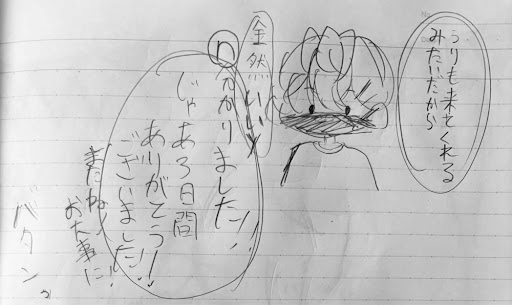 うりも来てくれる
みたいだから
全然いいよ
分かりました!!
じゃあ3日間
ありがとう
ございました!!
またね!
お大事に!
バタン。